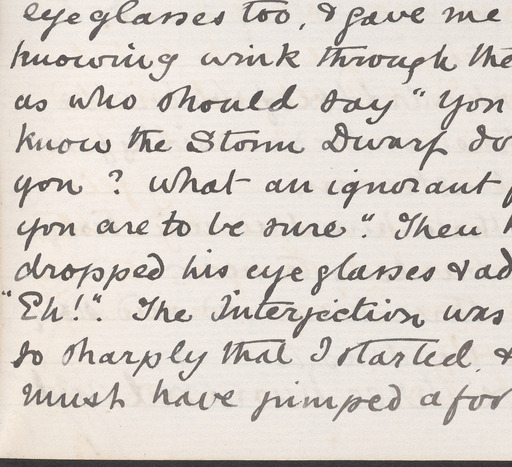 eyeglasses too, & gave me
knowing wink through the
as who should say "You
know the Storm Dwarf do
you? what an ignorant
you are to be sure". Then
dropped his eyeglasses & ad
"Eh!". The Interjection was
so sharply that I started. &
must have jumped a foo